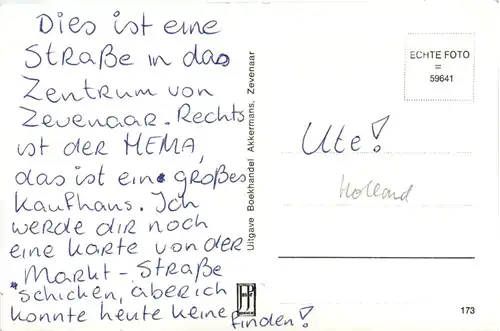 Dies ist eine
Straße in das
Zentrum von
Zevenaar. Rechts
ist der HEMA,
das ist ein großes
Kaufhaus. Ich
werde dir noch
eine Karte von der
Markt-Straße
schicken, aber ich
konnte heute keine finden!
Uitgave Boekhandel Akkermans, Zevenaar
ECHTE FOTO
=
59641
Ute!
Holland
173